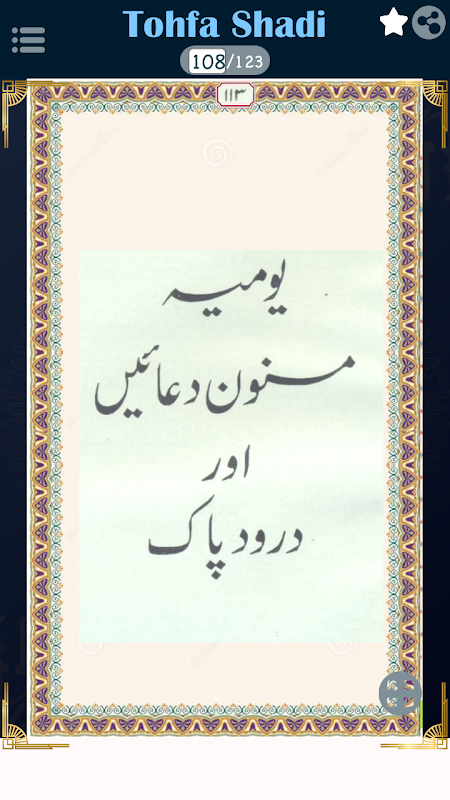 Tohfa Shadi
108/123
۱۱۳
یومیہ
مسنون دعائیں
اور
درود پاک